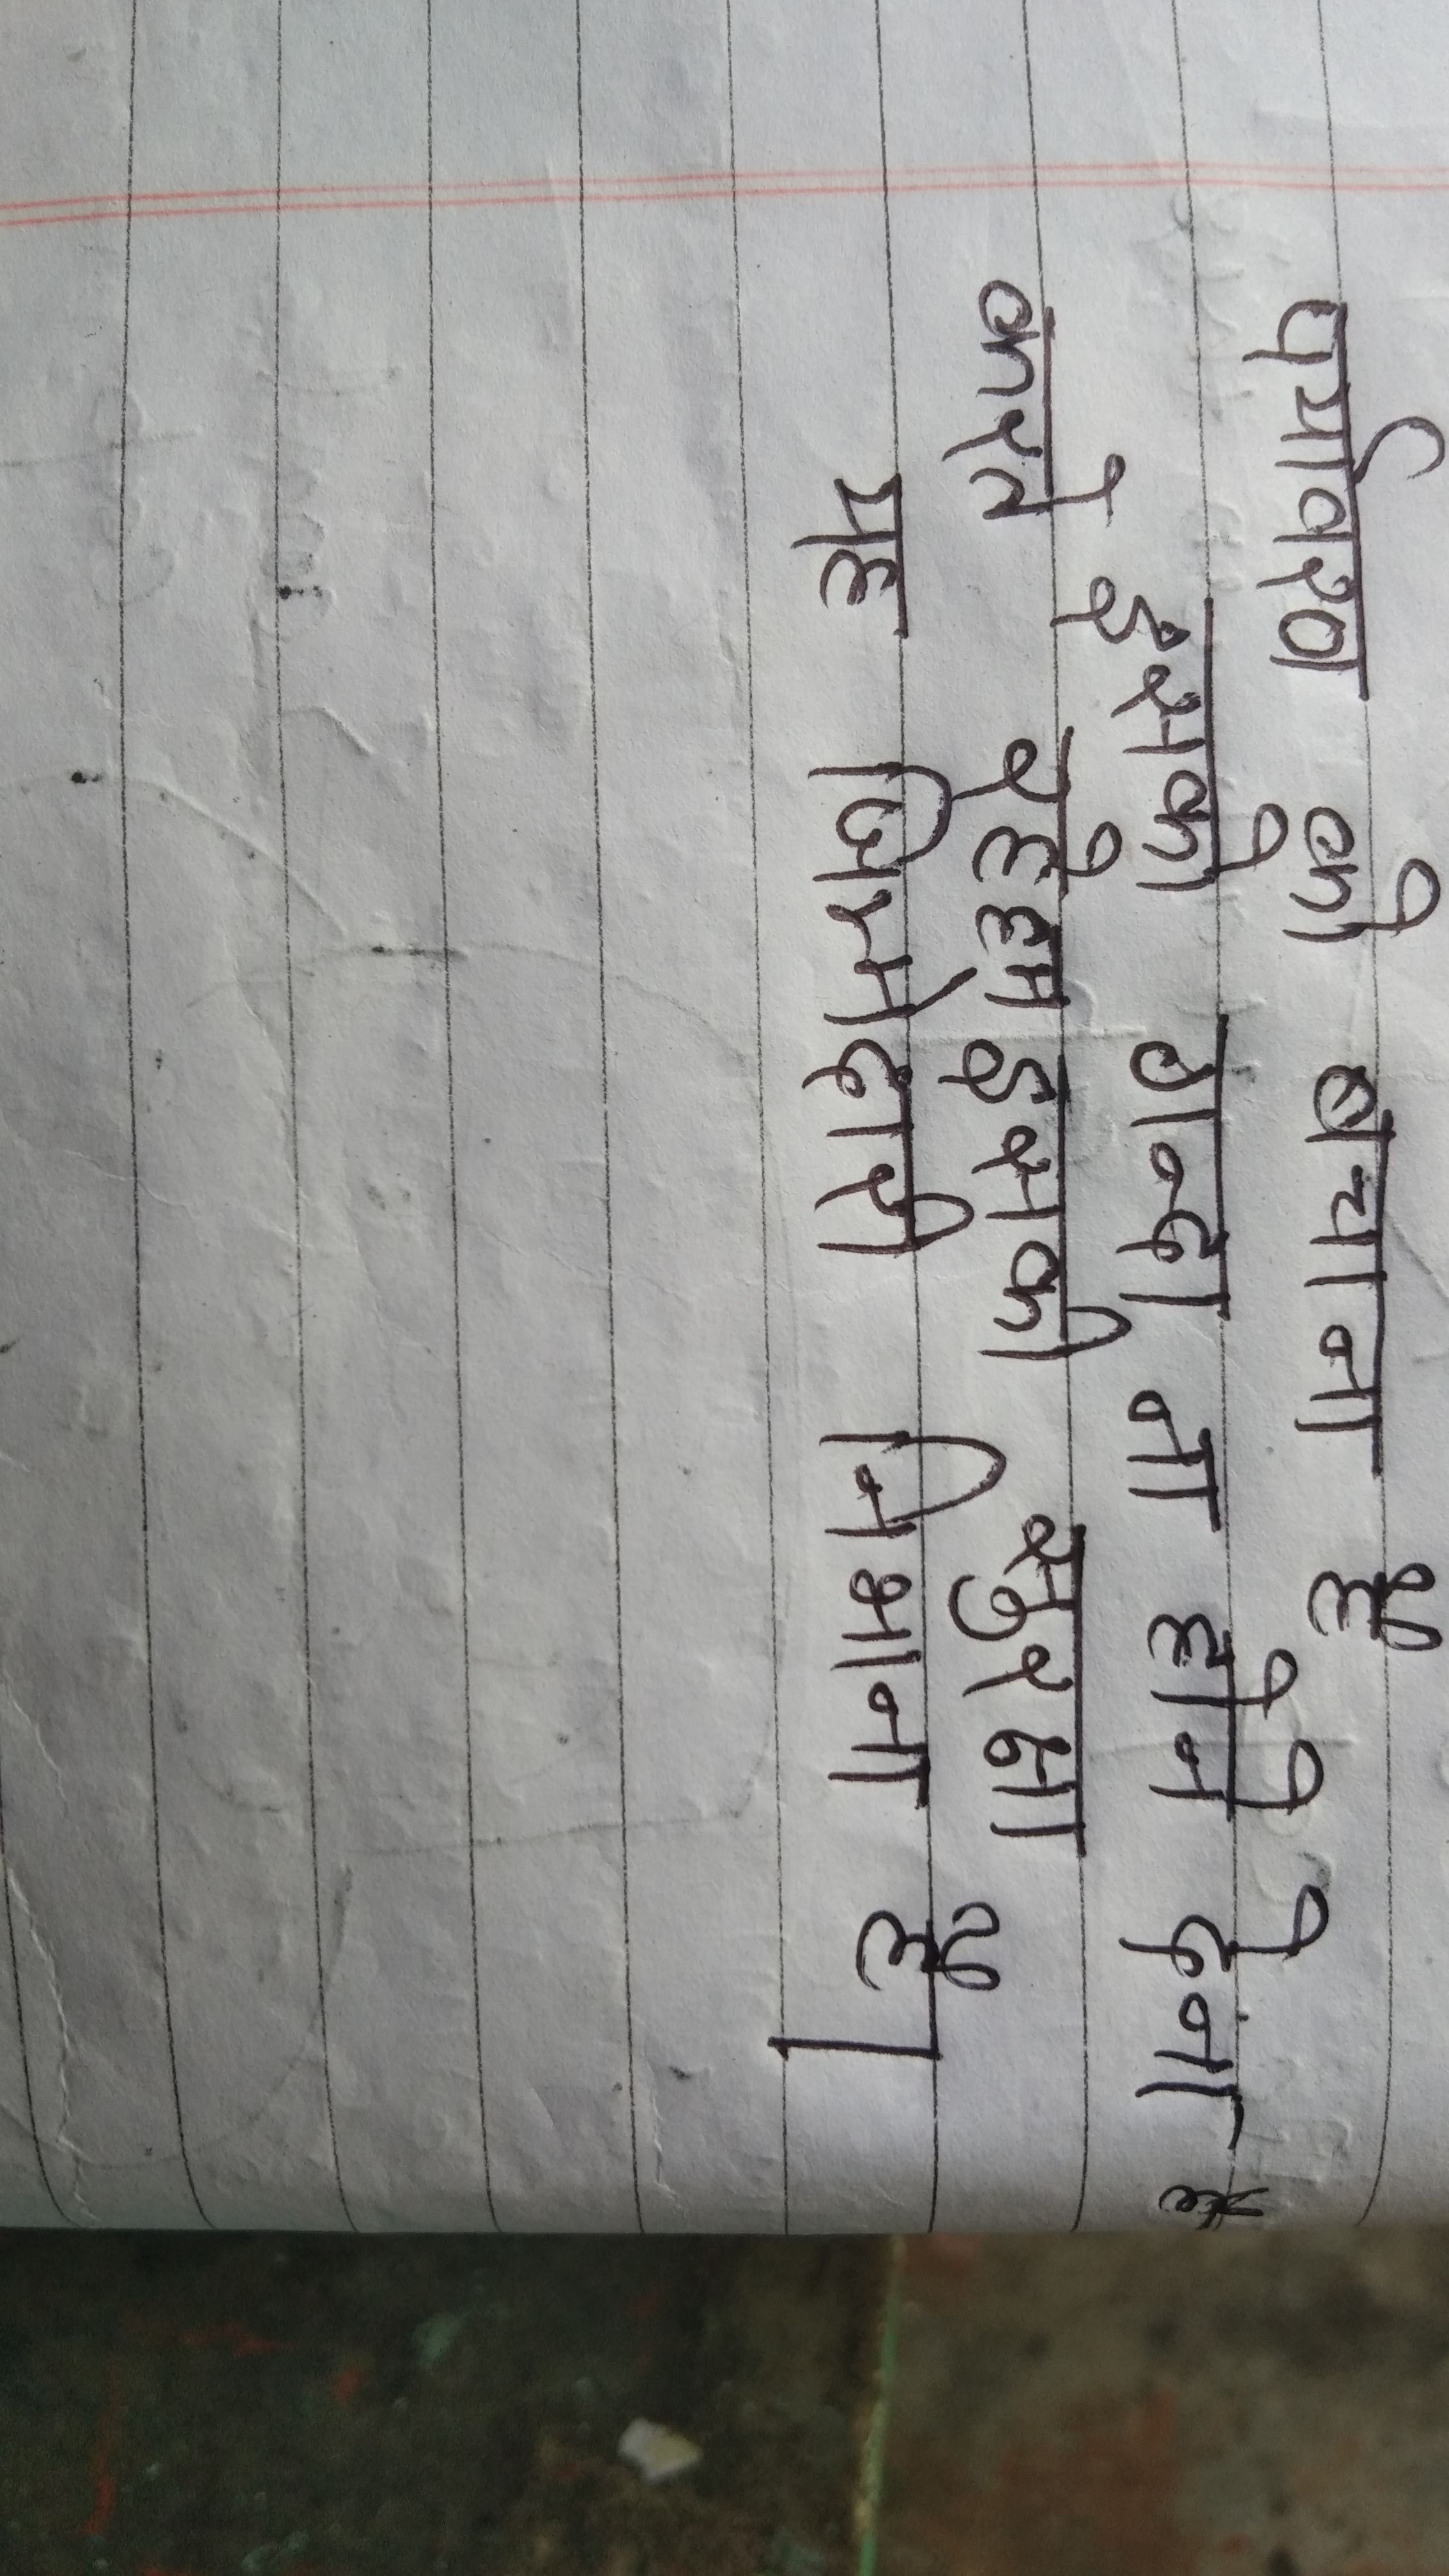 पर्यावरण को बचाना है
इसको गन्दा ना होने देना
करते रहे हम इसकी सुरक्षा
यह जिम्मेदारी निभाना है।